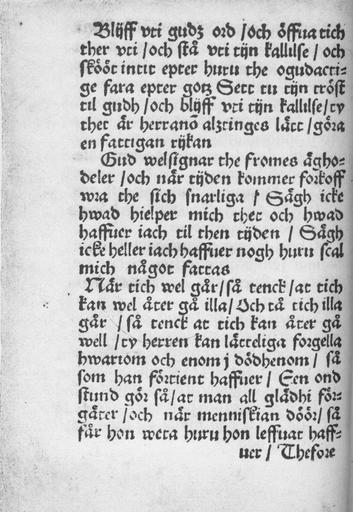 Blijff vti gudz ord / och öffua tich
ther vti / och stå vti tijn kallilse / och
skööt intit epter huru the ogudacti-
ge fara epter götz Sett tu tijn tröst
til gudh / och blijff vti tijn kallilse / ty
thet är herranō alztinges lätt / göra
en fattigan rijkan
Gud welsignar the fromes ägho-
deler / och när tijden kommer forkoff
wra the sich snarliga / Sägh icke
hwad hielper mich thet och hwad
haffuer iach til then tijden / Sägh
icke heller iach haffuer nogh huru scal
mich något fattas
När tich wel går / så tenck / at tich
kan wel åter gå illa / Och tå tich illa
går / så tenck at tich kan åter gå
well / ty herren kan lätteliga forgella
hwariom och enom j dödhenom / så
som han förtient haffuer / Een ond
stund gör så / at man all glädhi för-
gäter / och när menniskian döör / så
får hon weta huru hon leffuat haff-
uer / Thefore